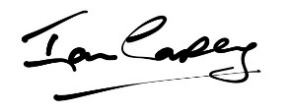 Ian Carey